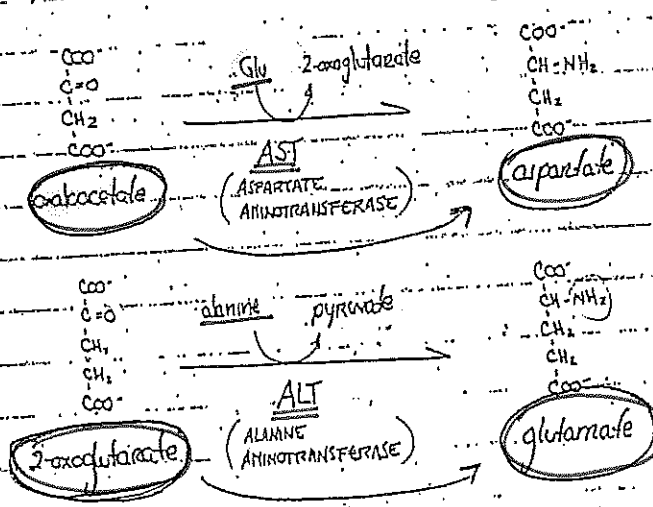 COO⁻
C=O
CH₂
COO⁻
oxaloacetate
Glu 2-oxoglutarate
AST
(ASPARTATE
AMINOTRANSFERASE)
COO⁻
CH-NH₂
CH₂
COO⁻
aspartate
COO⁻
C=O
CH₂
CH₂
COO⁻
2-oxoglutarate
alanine pyruvate
ALT
(ALANINE
AMINOTRANSFERASE)
COO⁻
CH-NH₂
CH₂
CH₂
COO⁻
glutamate